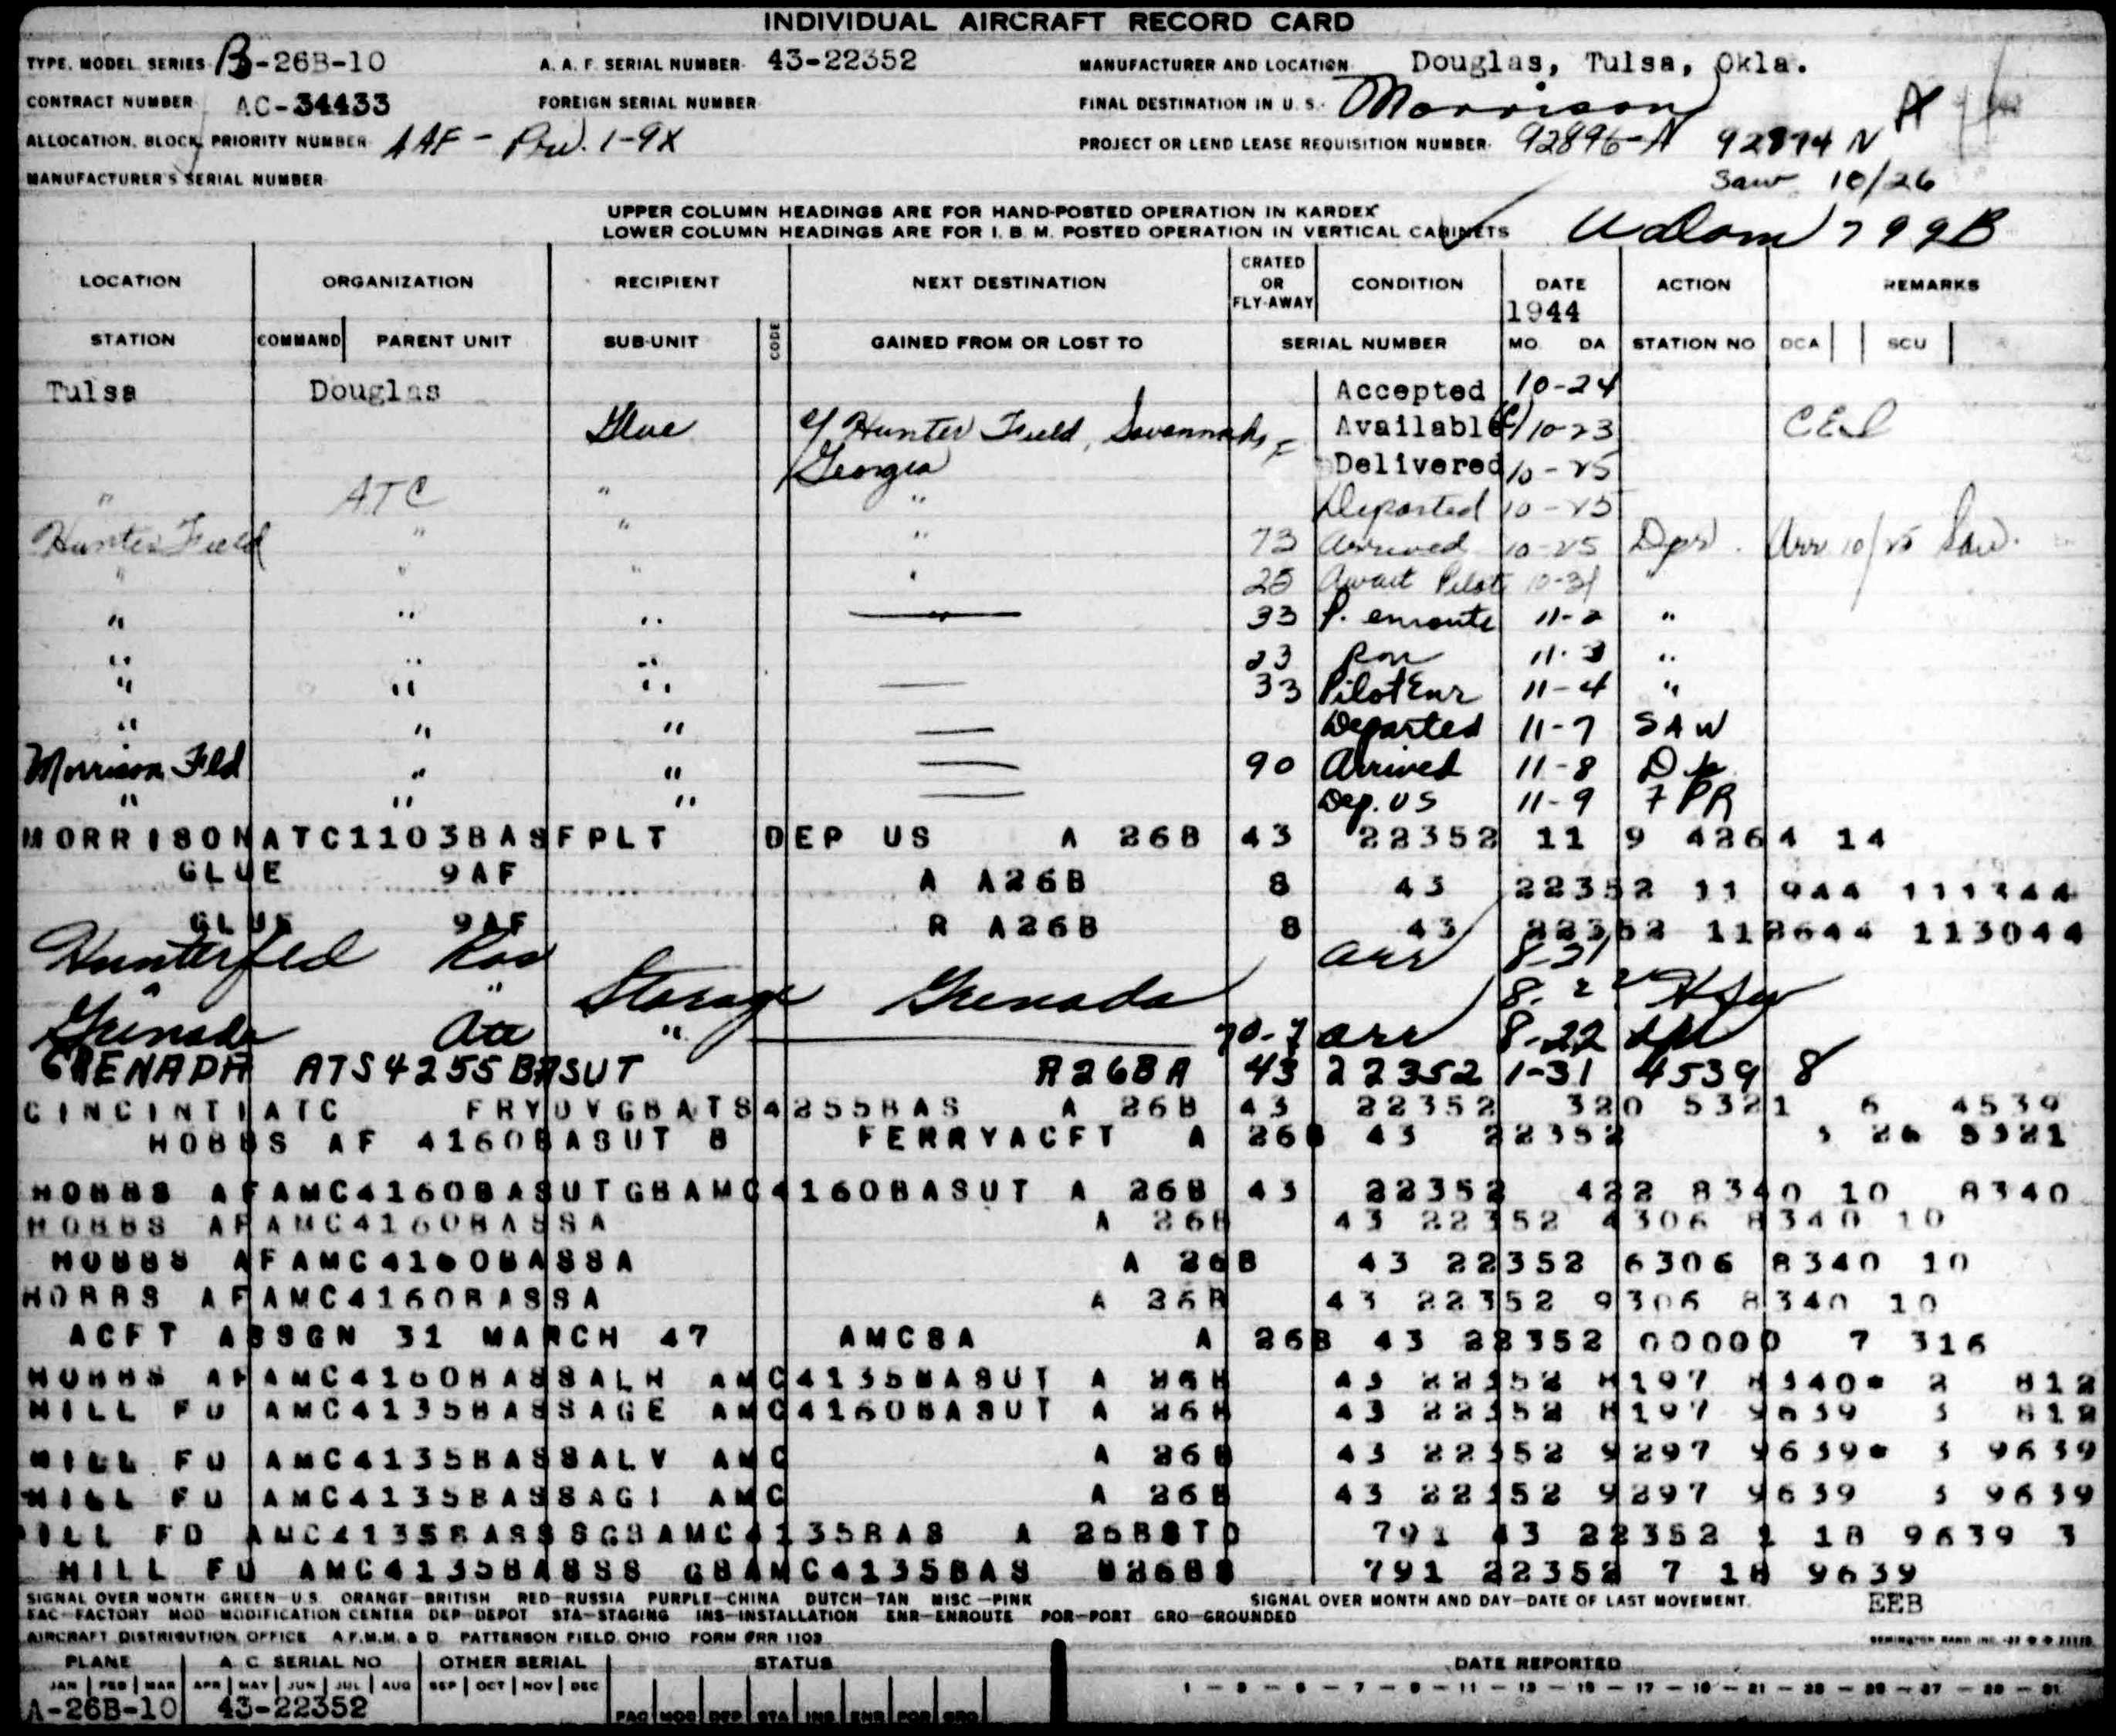 INDIVIDUAL AIRCRAFT RECORD CARD
TYPE, MODEL, SERIES B-26B-10 A. A. F. SERIAL NUMBER 43-22352 MANUFACTURER AND LOCATION Douglas, Tulsa, Okla.
CONTRACT NUMBER AC-34433 FOREIGN SERIAL NUMBER FINAL DESTINATION IN U. S. Morrison
ALLOCATION, BLOCK, PRIORITY NUMBER AAF - 1-9X PROJECT OR LEND LEASE REQUISITION NUMBER 92896-A 92874 N
MANUFACTURER'S SERIAL NUMBER Saw 10/26
UPPER COLUMN HEADINGS ARE FOR HAND-POSTED OPERATION IN KARDEX
LOWER COLUMN HEADINGS ARE FOR I. B. M. POSTED OPERATION IN VERTICAL CABINETS 799B
LOCATION ORGANIZATION RECIPIENT NEXT DESTINATION CRATED OR FLY-AWAY CONDITION DATE 1944 ACTION REMARKS
STATION COMMAND PARENT UNIT SUB-UNIT CODE GAINED FROM OR LOST TO SERIAL NUMBER MO. DA. STATION NO DCA SCU
Tulsa Douglas Accepted 10-24
Glue Hunter Field, Savannah, F Available 10-23
Georgia Delivered 10-25
" ATC " " Departed 10-25
Hunter Field " " " 73 Arrived 10-25 Arr 10/25 Saw.
" " " " 25 Await Pilot 10-31 "
" " " 33 P. enroute 11-2 "
" " " 23 Ron 11-3 "
" " " 33 Pilot Enr 11-4 "
" " " Departed 11-7 SAW
Morrison Fld " " 90 Arrived 11-8
" " " Dep. US 11-9 7 PR
MORRISONATC1103BASFPLT DEP US A 26B 43 22352 11 9 4264 14
GLUE 9AF A A26B 8 43 22352 11 944 111344
GLUE 9AF R A26B 8 43 22352 112644 113044
Hunterfed arr 8-21
" " Storage Grenada 8-22
Grenada " 70-7 arr 8-22
GRENADA ATS4255BASUT A26BA 43 22352 1-31 4539 8
CINCINTIATC FRYDVGBATS4255BAS A 26B 43 22352 320 5321 6 4539
HOBBS AF 4160BASUT B FERRYACFT A 26B 43 22352 3 26 5321
HOBBS AFAMC4160BASUTGBAMC4160BASUT A 26B 43 22352 422 8340 10 8340
HOBBS AFAMC4160BASSA A 26B 43 22352 4306 8340 10
HOBBS AFAMC4160BASSA A 26B 43 22352 6306 8340 10
HOBBS AFAMC4160BASSA A 26B 43 22352 9306 8340 10
ACFT ASSGN 31 MARCH 47 AMCSA A 26B 43 22352 00000 7 316
HOBBS AFAMC4160BASSALH AMC4135BASUT A 26B 43 22352 8197 8340* 2 812
HILL FD AMC4135BASSAGE AMC4160BASUT A 26B 43 22352 8197 9639 3 812
HILL FD AMC4135BASSALV AMC A 26B 43 22352 9297 9639* 3 9639
HILL FD AMC4135BASSAGI AMC A 26B 43 22352 9297 9639 3 9639
HILL FD AMC4135BASSSGBAMC4135BAS A 26BSTD 791 43 22352 1 18 9639 3
HILL FD AMC4135BASSS GBAMC4135BAS 791 22352 7 18 9639
SIGNAL OVER MONTH GREEN-U.S. ORANGE-BRITISH RED-RUSSIA PURPLE-CHINA DUTCH-TAN MISC-PINK SIGNAL OVER MONTH AND DAY-DATE OF LAST MOVEMENT. EEB
FAC-FACTORY MOD-MODIFICATION CENTER DEP-DEPOT STA-STAGING INS-INSTALLATION ENR-ENROUTE POR-PORT GRO-GROUNDED
AIRCRAFT DISTRIBUTION OFFICE A.F.M.M. & D. PATTERSON FIELD, OHIO FORM PRR 1103
PLANE A. C. SERIAL NO. OTHER SERIAL STATUS DATE REPORTED
JAN FEB MAR APR MAY JUN JUL AUG SEP OCT NOV DEC
A-26B-10 43-22352 FAC MOD DEP STA INS ENR POR GRO